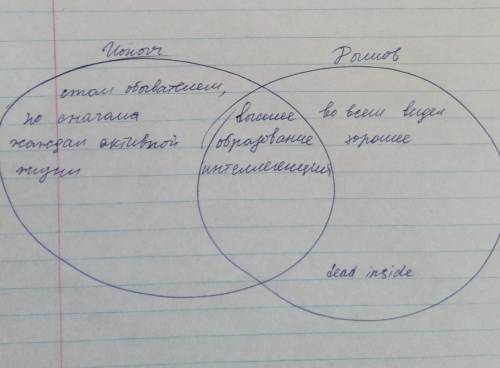 Ионыч
Дымов
стал обывателем,
но сначала
жаждал активной
жизни
высшее
образование
интеллегенция
во всем видел
хорошее
dead inside